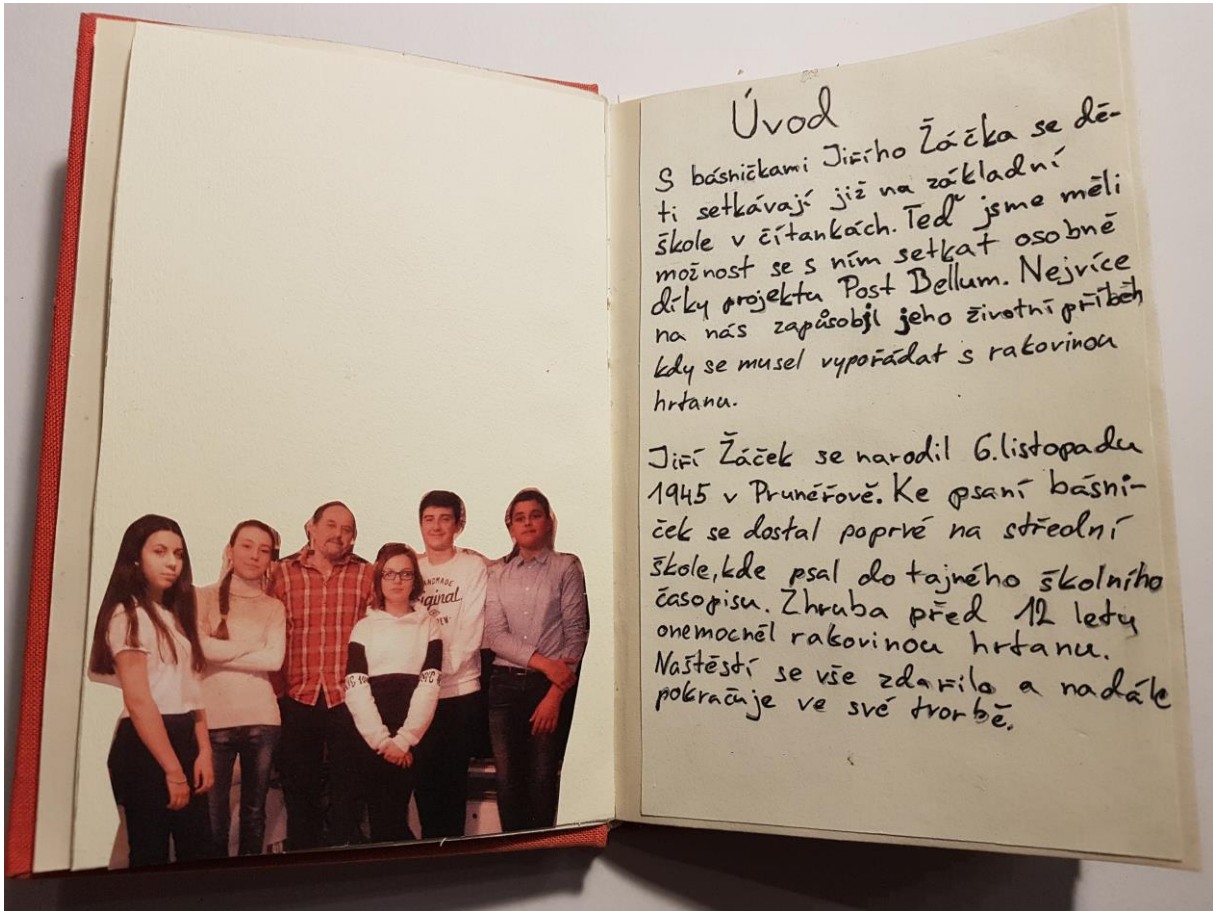 HANDMADE
Original
Úvod
S básničkami Jiřího Žáčka se dě-
ti setkávají již na základní
škole v čítankách. Teď jsme měli
možnost se s ním setkat osobně
díky projektu Post Bellum. Nejvíce
na nás zapůsobil jeho životní příběh
kdy se musel vypořádat s rakovinou
hrtanu.
Jiří Žáček se narodil 6.listopadu
1945 v Prunéřově. Ke psaní básni-
ček se dostal poprvé na střední
škole, kde psal do tajného školního
časopisu. Zhruba před 12 lety
onemocněl rakovinou hrtanu.
Naštěstí se vše zdařilo a nadále
pokračuje ve své tvorbě.